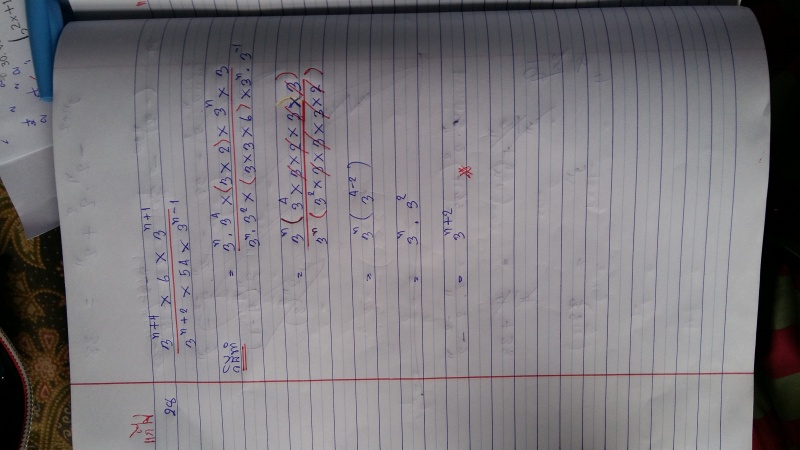 28
3^{n+4} × 6 × 3^{n+1}
3^{n+2} × 54 × 3^{n-1}
= 3^n · 3^4 × (3 × 2) × 3^n × 3
3^n · 3^2 × (3 × 3 × 6) × 3^n · 3^{-1}
= 3^n (3^4 × 3 × 2 × 3 × 3)
3^n (3^2 × 3 × 3 × 3 × 2)
= 3^n (3^{4-2})
= 3^n · 3^2
= 3^{n+2}